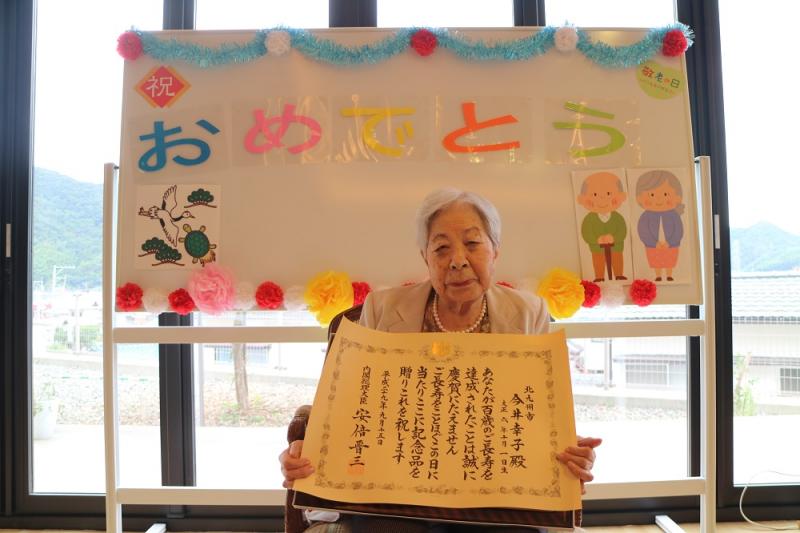 祝
敬老の日
おめでとう
北九州市
今井幸子殿
大正六年十月一日生
あなたが百歳のご長寿を
達成されたことは誠に
慶賀にたえません
ご長寿をことほぐこの日に
当たりここに記念品を
贈りこれを祝します
平成二十九年九月十五日
内閣総理大臣 安倍晋三